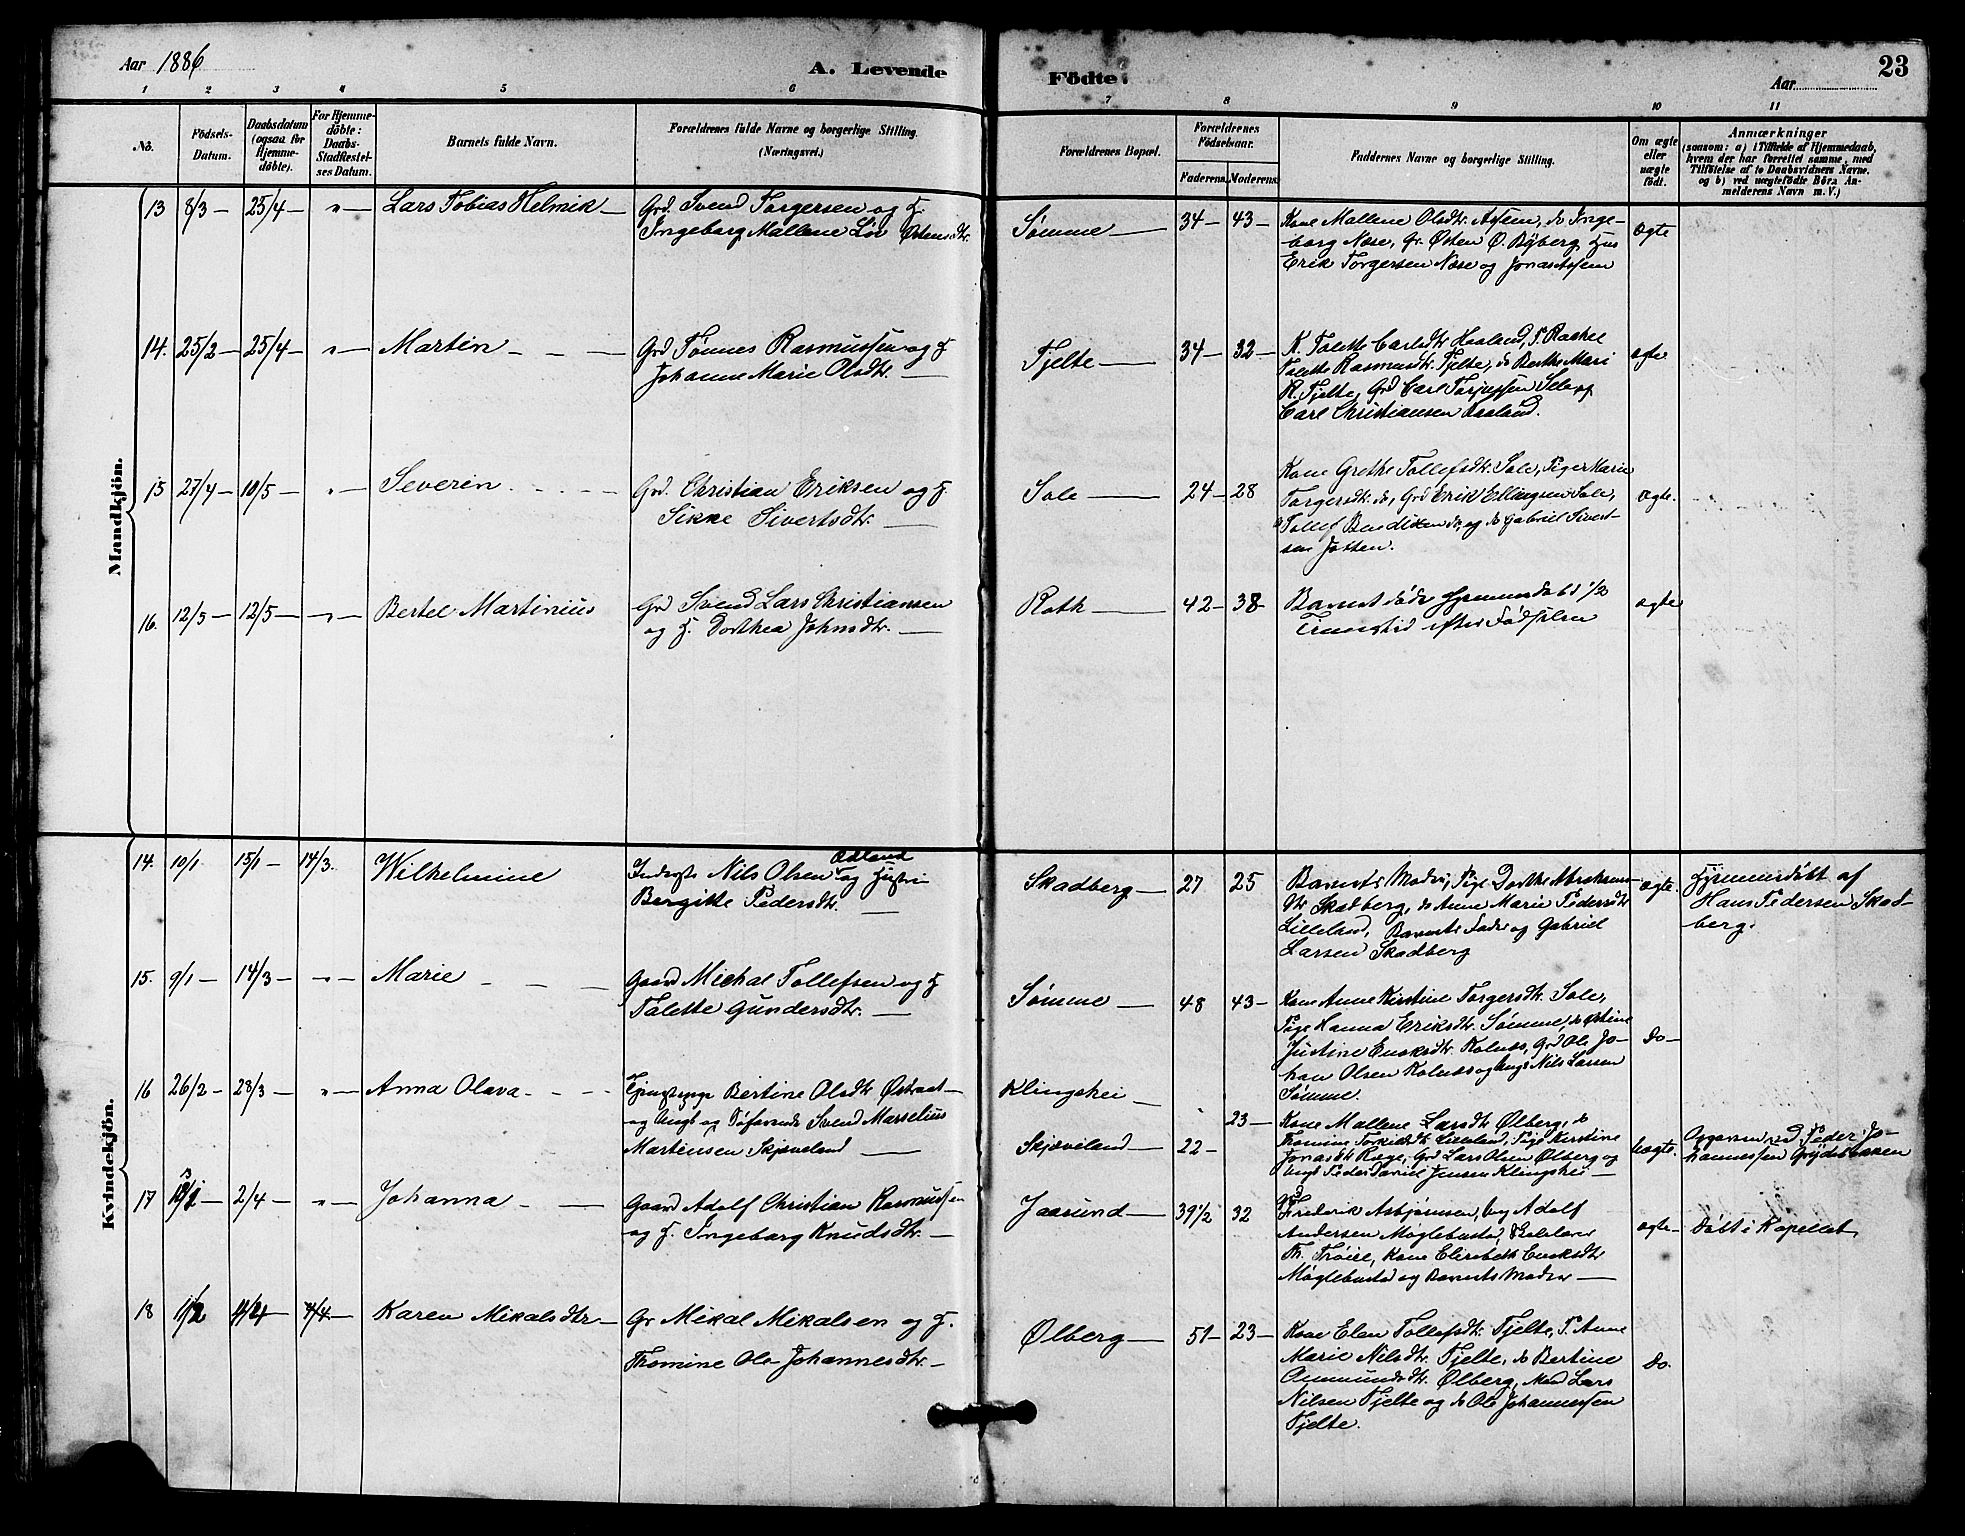 Aar 1886
A. Levende
Födte.
Aar
23
1 2 3 4 5 6 7 8 9 10 11
No.
Födsels-
Datum.
Daabsdatum
(ogsaa for
Hjemme-
döbte).
For Hjemme-
döbte:
Daabs-
Stadfæstel-
ses Datum.
Barnets fulde Navn.
Forældrenes fulde Navne og borgerlige Stilling.
(Næringsvei.)
Forældrenes Bopæl.
Forældrenes
Födselsaar.
Faderens. Moderens.
Faddernes Navne og borgerlige Stilling.
Om ægte
eller
uægte
födt.
Anmærkninger
(saasom: a) i Tilfælde af Hjemmedaab,
hvem der har forrettet samme, med
Tilföielse af to Daabsvidners Navne.
og b) ved uægtefödte Börn An-
melderens Navn m. V.)
Mandkjön.
13 8/3 — 25/4 — " — Lars Tobias Helmik —
Grd. Svend Torgersen og H.
Ingeborg Mallene Østensdtr.
Sømme — 34 — 43 —
Kone Mallene Olsdtr. Assem, do Inge-
borg Næse, Gr. Østen Ø. Byberg,
Erik Torgersen Næse og Jonas Assem
Ægte
14. 25/2 — 25/4 — " — Martin — — —
Grd Tønnes Rasmussen og H
Johanne Marie Olsdtr. —
Tjelte — 34 — 32 —
K. Talette Carlsdtr Haaland, P. Rachel
Talette Rasmusdtr. Tjelte, do Berthe Mari
R. Tjelte, Grd Carl Torjussen
Carl Christiansen Haaland.
ægte
15 27/4 — 10/5 — " — Severin — — —
Grd. Christian Eriksen og H.
Sikke Sivertsdtr. —
Sole — 24 — 28
Kone Grethe Tollefsdtr. Sole, Piger Marie
Torgersdtr. do, Grd Erik Ellingsen Sole,
Tollef Bendiksen do, og do Gabriel Sivert-
sen Jatten.
Ægte.
16. 12/5 — 12/5 — " — Bertel Martinius
Grd Svend Lars Christiansen
og H. Dorthea Johnsdtr. —
Roth — 42 — 38 —
Barnet døde hjemmedøbt 1/2
Timestid efter Fødselen
ægte
Kvindekjön.
14. 10/1. 15/1 — 14/3. Wilhelmine
Inderst Nils Olsen Ødland og Hustru
Bergitte Pedersdtr. —
Skadberg — 27 25
Barnets Moder, Pige Dorthe Abrahams-
dtr Skadberg, do Anne Marie Pedersdtr
Lilleland, Barnets Fader og Gabriel
Larsen Skadberg
ægte.
Hjemmedøbt af
Hans Pedersen Skad-
berg.
15. 9/1 — 14/3 — " — Marie — — —
Gaard Michal Tollefsen og H
Talette Gundersdtr. —
Sømme — 48 43 —
Kone Anne Kirstine Torgersdtr. Sole,
Pige Hanna Eriksdtr. Sømme, do Østine
Justine Enoksdtr. Kolnæs, Grd Ole Jo-
han Olsen Kolnæs og Ungk Nils Larsen
Sømme.
Do —
16 26/2 — 28/3 — " — Anna Olava — — —
Tjenestepige Bertine Olsdtr Østraat —
og Ungk og Søfarende Svend Marselius
Martensen Skjæveland —
Klingshei —
Skjæveland — 22 — 23 —
Kone Mallene Larsdtr Ølberg, do
Thomine Torkildsdtr. Lilleland, Pige Kirstine
Jonasdtr Ræge, Grd Lars Olsen Ølberg og
Ungk Peder Daniel Jensen Klingshei —
Uægte.
Opgiven ved Peder Jo-
hannessen
17 2/4 — " — Johanna — —
Gaard Adolf Christian Rasmussen
og H. Ingeborg Knudsdtr. —
Jaasund — 39 1/2 32
Frederik Asbjørnsen, Ung Adolf
Andersen Møglebustad,
Th. Trøie, Kone Elisabeth Enoksdtr
Møglebustad og Barnets Moder —
ægte —
Døbt i Kapellet
18 11/2 4/4 — Karen Mikalsdtr —
Gr Mikal Mikalsen og H.
Thomine Ole Johannesdtr. —
Ølberg — 51 — 23 —
Kone Elen Tollefsdtr. Tjelte, P. Anne
Marie Nilsdtr. Tjelte, do Bertine
Aanmundsdtr. Ølberg, Mand Lars
Nilsen Tjelte og do Ole Johannessen
Tjelte.
Do.